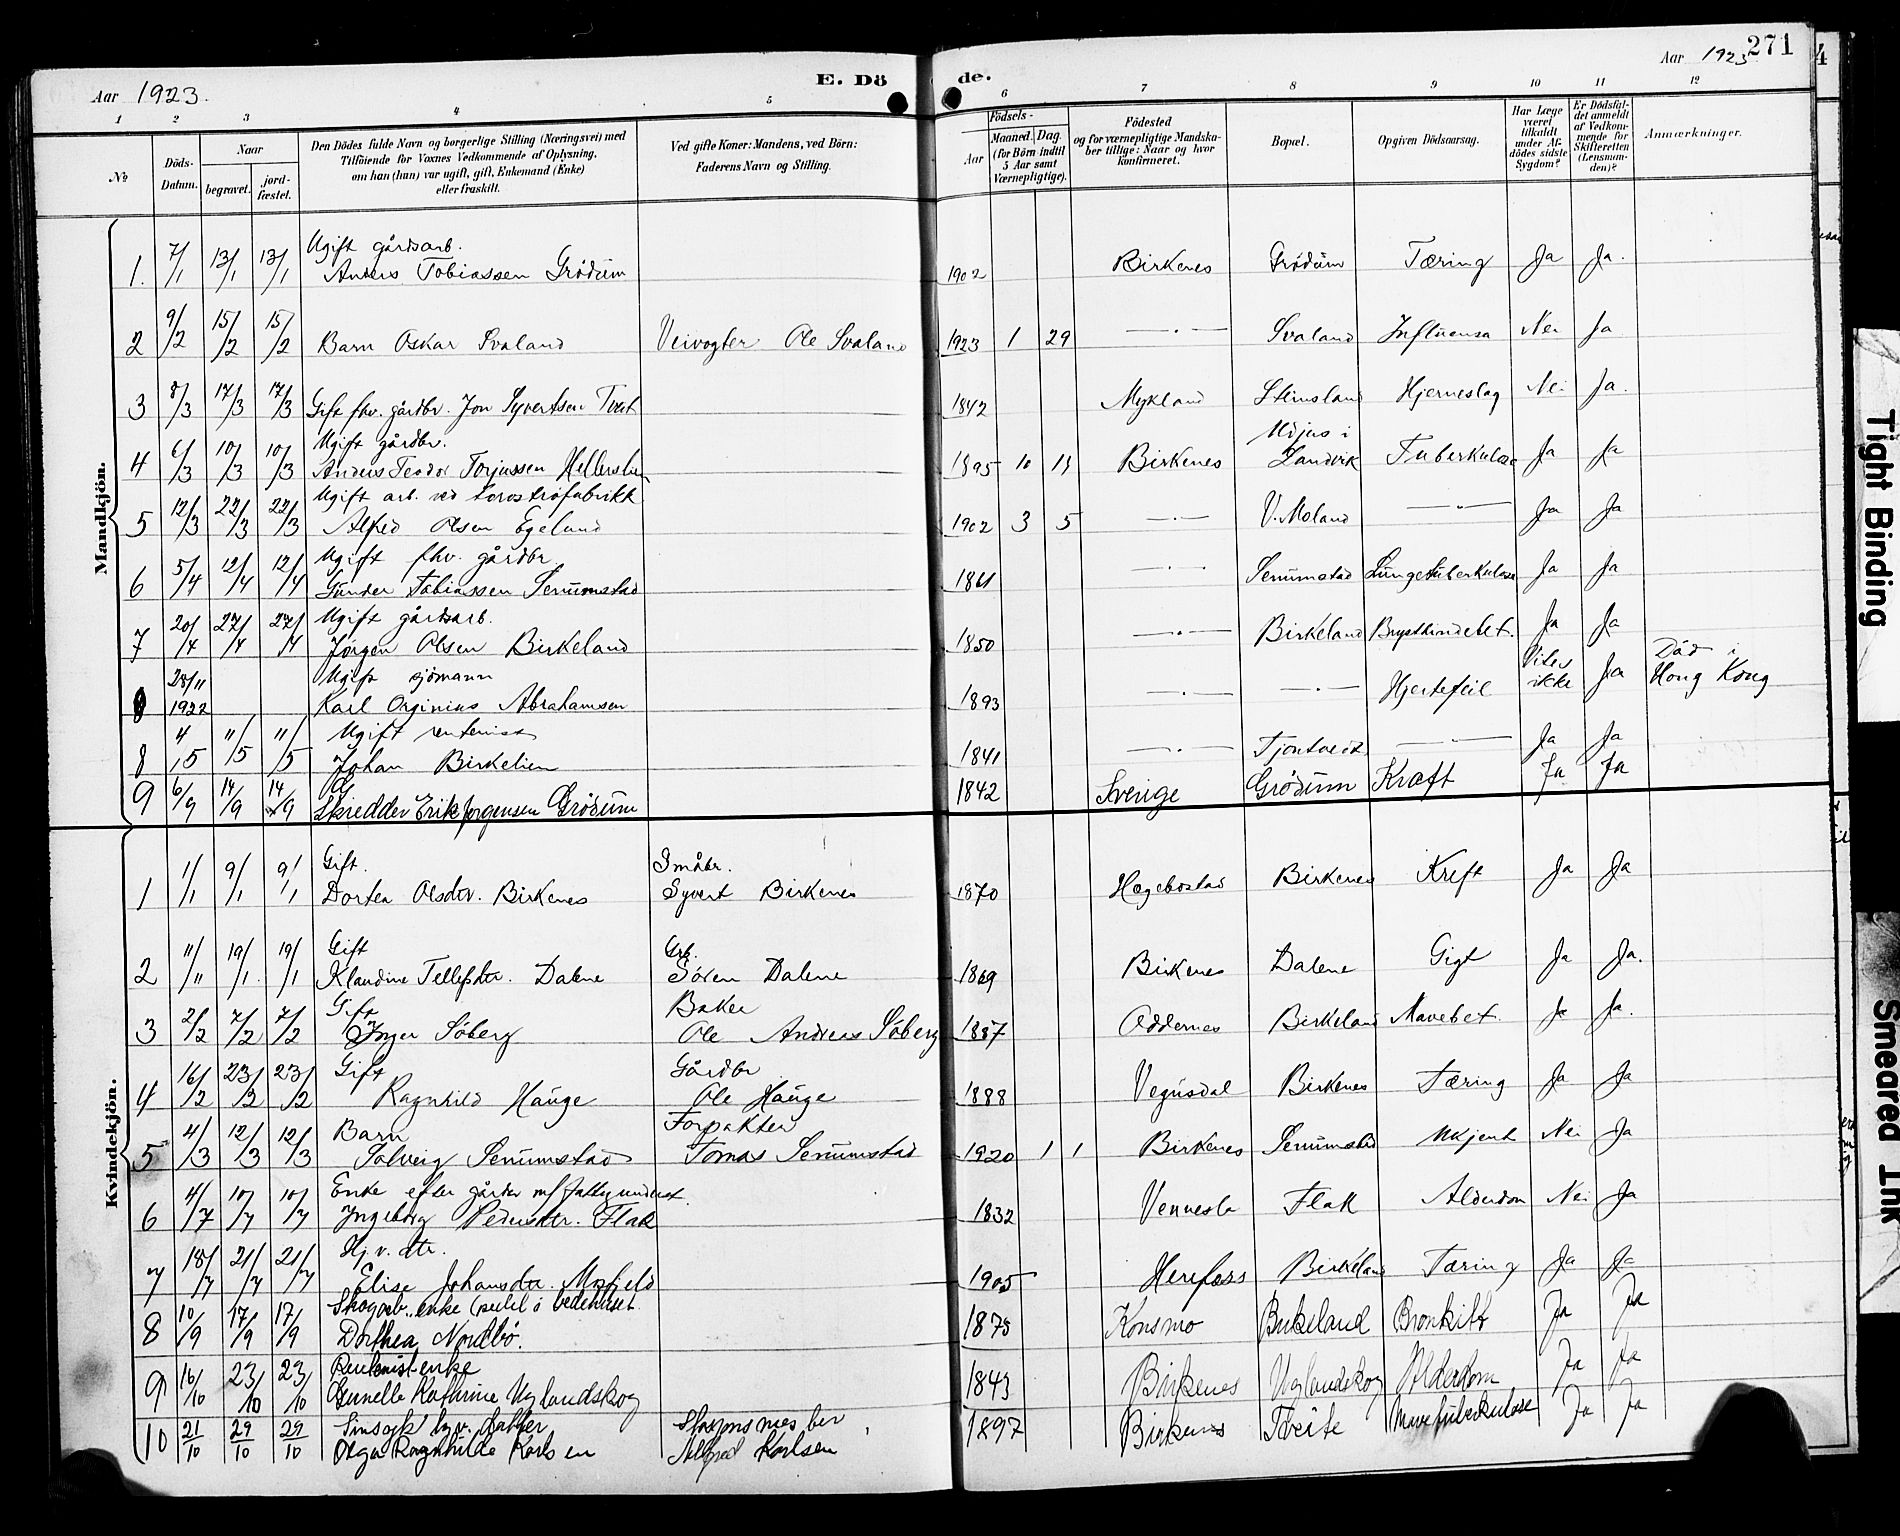 271
Aar 1923.
E. Döde.
Aar 1923
1 2 3 4 5 6 7 8 9 10 11 12
No
Döds-Datum.
Naar
begravet.
jord-fæstet.
Den Dödes fulde Navn og borgerlige Stilling (Næringsvei) med
Tilföiende for Voxnes Vedkommende af Oplysning,
om han (hun) var ugift, gift, Enkemand (Enke)
eller fraskilt.
Ved gifte Koner: Mandens, ved Börn:
Faderens Navn og Stilling.
Födsels-
Aar
Maaned. Dag.
(for Börn indtil
5 Aar samt
Værnepligtige).
Födested
og for værnepligtige Mandska-
ber tillige: Naar og hvor
konfirmeret.
Bopæl.
Opgiven Dödsaarsag.
Har Læge
været
tilkaldt
under Af-
dödes sidste
Sygdom?
Er Dödsfal-
det anmeldt
af Vedkom-
mende for
Skifteretten
(Lensman-
den)?
Anmærkninger.
Mandkjön.
Ugift gårdsarb.
1. 7/1 13/1 13/1 Anders Tobiassen Grödum 1902 Birkenes Grödum Tæring Ja Ja.
2 9/2 15/2 15/2 Barn Oskar Svaland Veivogter Ole Svaland 1923 1 29 —.— Svaland Influensa Nei Ja
3 8/3 17/3 17/3 Gift fhv. gårdbr. Jon Syvertsen Tveit 1842 Mykland Stensland Hjerneslag Nei Ja.
Ugift gårdbr.
4 6/3 10/3 10/3 Anders Teodor Torjussen 1895 10 Birkenes i Landvik Tuberkulose Ja Ja
Ugift arb. ved torvströfabrikk
5 12/3 22/3 22/3 Alfred Olsen Egeland 1902 3 5 —.— V. Moland —.— Ja Ja
Ugift fhv. gårdbr
6 5/4 12/4 12/4 Gunder Tobiassen Senumstad 1861 —.— Senumstad Lungetuberkulose Ja Ja
Ugift gårdsarb.
7 20/4 27/4 27/4 Jörgen Olsen Birkeland 1850 —.— Birkeland Brysthindebet. Ja Ja
Ugift sjömann
8 28/11 1922 Karl Orginius Abrahamsen 1893 —.— —.— Hjertefeil Vites ikke Ja Död i Hong Kong
Ugift rentenist
8 4/5 11/5 11/5 Johan Birkelien 1841 —.— Tjontveit —.— Ja Ja
9 6/9 14/9 14/9 Skredder Erik Jorgensen Grödum 1842 Sverige Grödum Kræft Ja Ja
Kvindekjön.
Gift. Småbr.
1 1/1 9/1 9/1 Dortea Olsdtr. Birkenes Syvert Birkenes 1870 Hægebostad Birkenes Kreft Ja Ja
Gift Arb.
2 11/11 19/1 19/1 Klaudine Tellefsdtr. Dalene Sören Dalene 1869 Birkenes Dalene Gigt Ja Ja.
Gift Baker
3 2/2 7/2 7/2 Inger Söberg Ole Andreas Söberg 1887 Oddernes Birkeland Mavebet. Ja Ja.
Gift Gårdbr
4 16/2 23/2 23/2 Ragnhild Hauge Ole Hauge 1888 Vegusdal Birkenes Tæring Ja Ja
Barn Forpakter
5 4/3 12/3 12/3 Solveig Senumstad Tomas Senumstad 1920 1 1 Birkenes Senumstad Ukjent Nei Ja
Enke efter gårdbr m/ fattigunderst.
6 4/7 10/7 10/7 Ingeborg Pedersdtr. Flak 1832 Vennesla Flak Alderdom Nei Ja
Hj. v. dtr.
7 18/7 21/7 21/7 Elise Johansdtr. Mosfjeld 1905 Herefoss Birkeland Tæring Ja Ja
Skogarb. enke (pulel å bedehuset.
8 10/9 17/9 17/9 Dorthea Nordbö. 1875 Konsmo Birkeland Bronkitt Ja Ja
Rentenist-enke
9 16/10 23/10 23/10 Gunelle Kathrine Uglandskog 1843 Birkenes Uglandskog Alderdom Ja Ja
Sinssyk hjv. datter Stasjonsmester
10 21/10 29/10 29/10 Olga Ragnhilde Karlsen Karlsen 1897 Birkenes Tveite Mavetuberkulose Ja Ja
Tight Binding
Smeared Ink